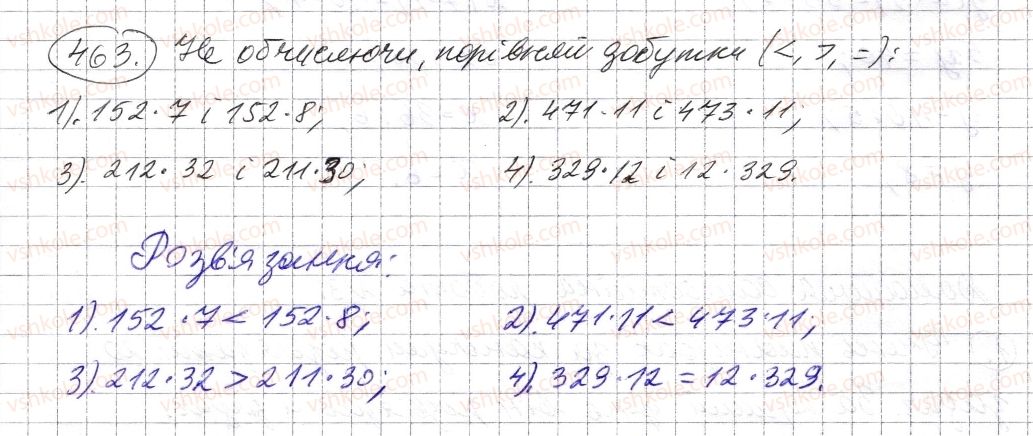 463. Не обчислюючи, порівняй добутки (<, >, =):
1). 152 · 7 і 152 · 8; 2). 471 · 11 і 473 · 11;
3). 212 · 32 і 211 · 30; 4). 329 · 12 і 12 · 329.
Розв'язання:
1). 152 · 7 < 152 · 8; 2). 471 · 11 < 473 · 11;
3). 212 · 32 > 211 · 30; 4). 329 · 12 = 12 · 329.
vshkole.com